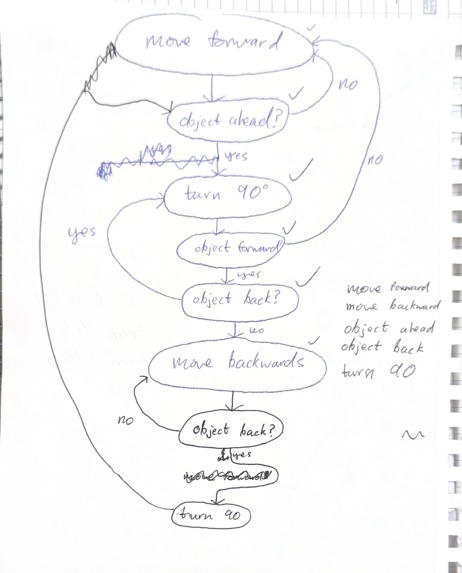 move forward
no
object ahead?
yes
turn 90°
no
yes
object forward
yes
object back?
no
move backwards
no
object back?
yes
turn 90
move forward
move backward
object ahead
object back
turn 90